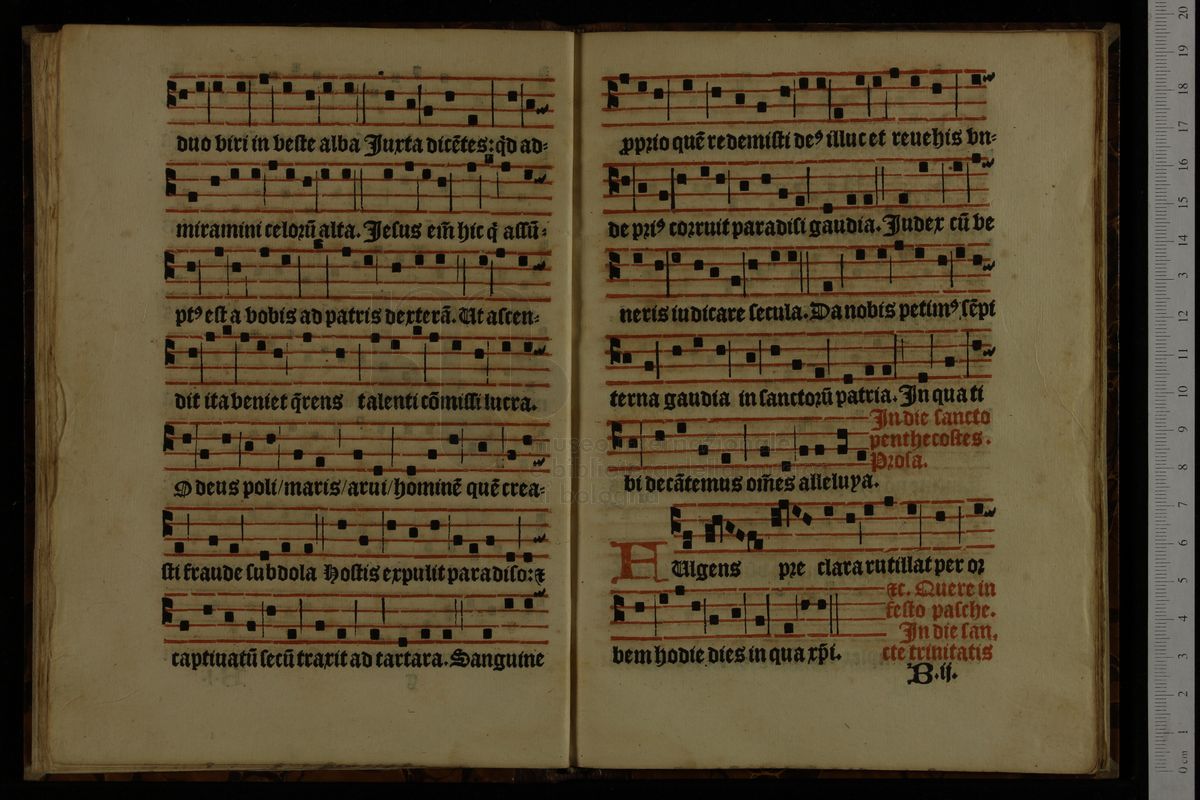 duo viri in veste alba Juxta dicẽtes: qd̃ ad-
miramini celorũ alta. Jesus em̃ hic q̃ assũ-
ptꝰ est a vobis ad patris dexterã. Ut ascen-
dit ita veniet q̃rens talenti cõmissi lucra.
O deus poli/maris/arui/hominẽ quẽ crea-
sti fraude subdola Hostis expulit paradiso: ⁊
captiuatũ secũ traxit ad tartara. Sanguine
ꝓprio quẽ redemisti deꝰ illuc et reuehis vn-
de priꝰ corruit paradisi gaudia. Judex cũ ve
neris iudicare secula. Da nobis petimꝰ sẽpi
terna gaudia in sanctorũ patria. In qua ti
In die sancto
penthecostes.
Prosa.
bi decãtemus om̃es alleluya.
FUlgens pre clara rutillat per or
⁊c. Quere in
festo pasche.
bem hodie dies in qua xp̃i.
In die san.
cte trinitatis
B.ij.
museo internazionale
e biblioteca della musica
di bologna